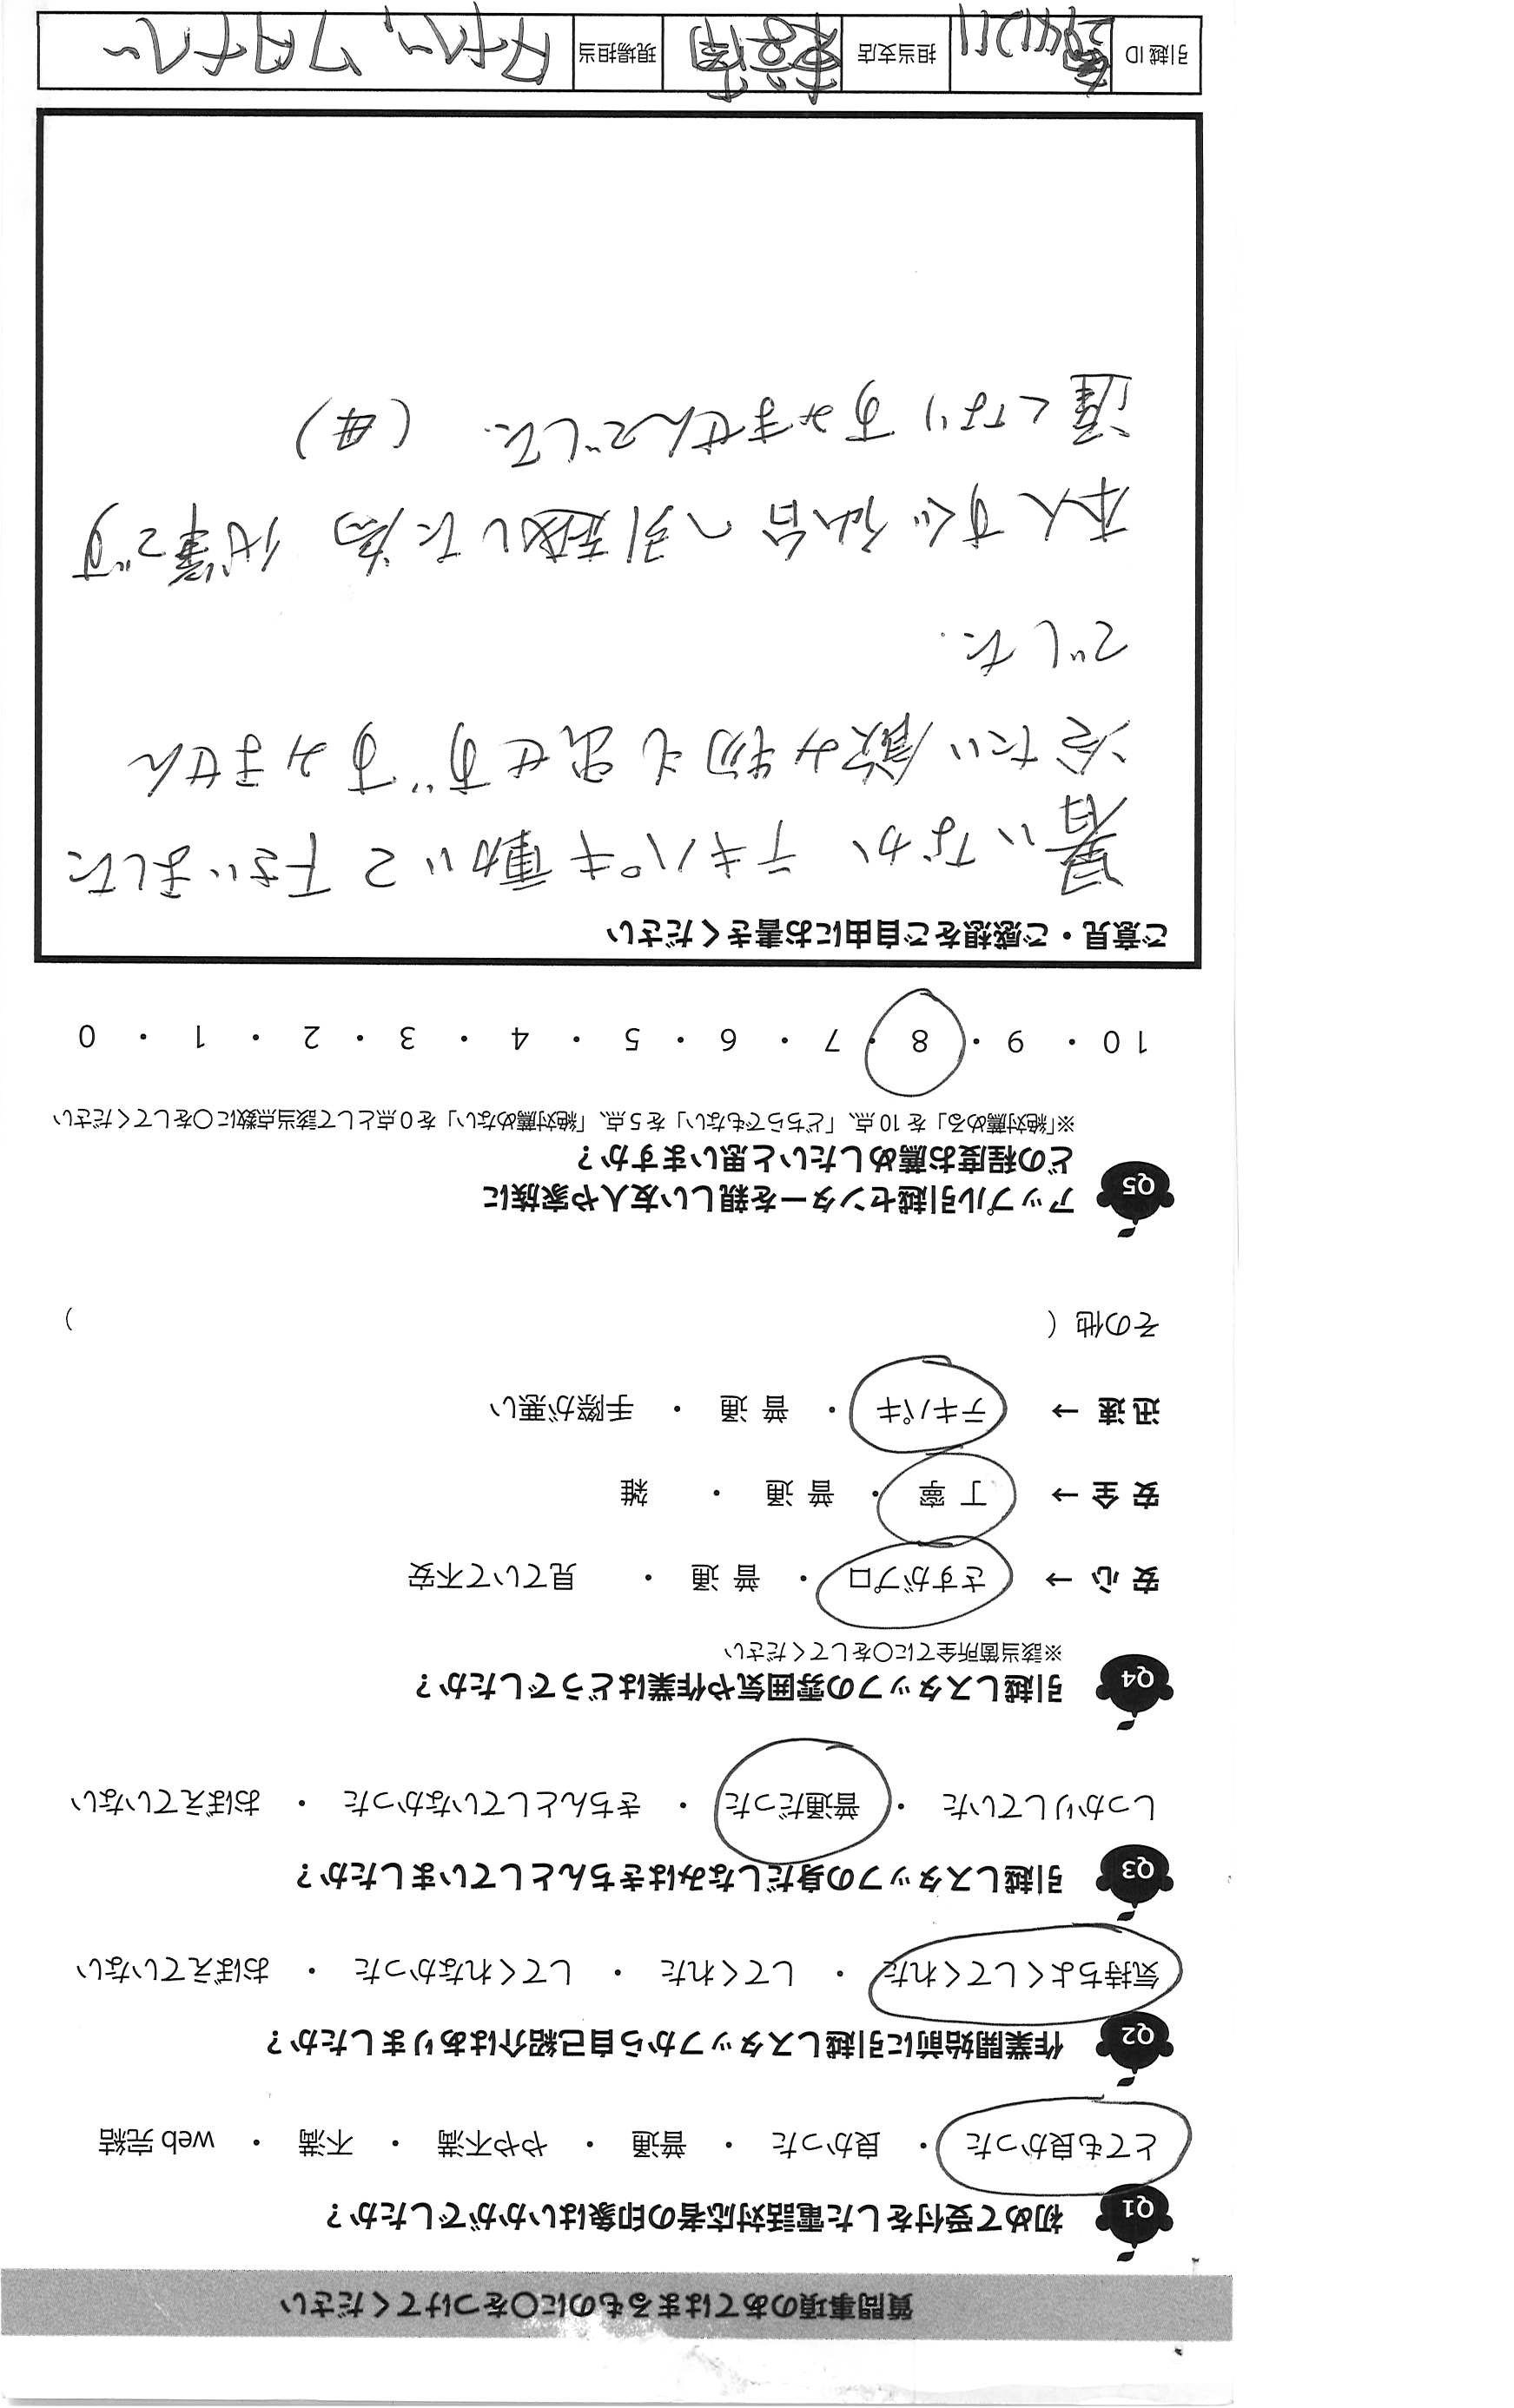 質問事項のあてはまるものに〇をつけてください
Q1 初めて受付をした電話対応者の印象はいかがでしたか？
とても良かった ・ 良かった ・ 普通 ・ やや不満 ・ 不満 ・ web 完結
Q2 作業開始前に引越しスタッフから自己紹介はありましたか？
気持ちよくしてくれた ・ してくれた ・ してくれなかった ・ おぼえていない
Q3 引越しスタッフの身だしなみはきちんとしていましたか？
しっかりしていた ・ 普通だった ・ きちんとしていなかった ・ おぼえていない
Q4 引越しスタッフの雰囲気や作業はどうでしたか？
※該当箇所全てに〇をしてください
安 心 → さすがプロ ・ 普 通 ・ 見ていて不安
安 全 → 丁 寧 ・ 普 通 ・ 雑
迅 速 → テキパキ ・ 普 通 ・ 手際が悪い
その他 （ ）
Q5 アップル引越センターを親しい友人や家族に
どの程度お薦めしたいと思いますか？
※「絶対薦める」を 10 点、「どちらでもない」を 5 点、「絶対薦めない」を 0 点として該当点数に〇をしてください
10 ・ 9 ・ 8 ・ 7 ・ 6 ・ 5 ・ 4 ・ 3 ・ 2 ・ 1 ・ 0
ご意見・ご感想をご自由にお書きください
暑いなか テキパキ動いて下さいました
冷たい飲み物も出せず すみません
でした.
本人すぐ仙台へ引越した為 代筆です
遅くなりすみませんでした. (母)
引越 ID 担当支店 現場担当